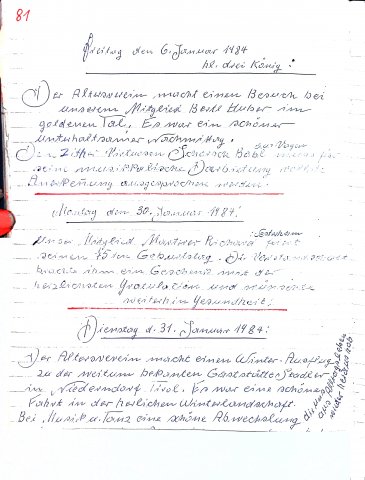 81
Freitag den 6. Januar 1984
hl. drei König:
Der Altersverein macht einen Besuch bei
unserem Mitglied Bartl Huber im
goldenen Tal. Es war ein schöner
unterhaltsamer Nachmittag.
Den Zither Virtuosen Bartl muss für
sein musikalische Darbietung
Anerkennung ausgesprochen werden.
Montag den 30. Januar 1984:
Unser Mitglied Richard feiert
seinen 75ten Geburtstag. Die Vorstandschaft
brachte ihm ein Geschenk mit der
herzlichsten Gratulation und wünschen
weiterhin Gesundheit!
Dienstag d. 31. Januar 1984:
Der Altersverein macht einen Winter-Ausflug
zu der weitum bekanten Gaststätte Stadler
in Niederndorf Tirol. Es war eine schöne
Fahrt in der herlichen Winterlandschaft.
Bei Musik u. Tanz eine schöne Abwechslung